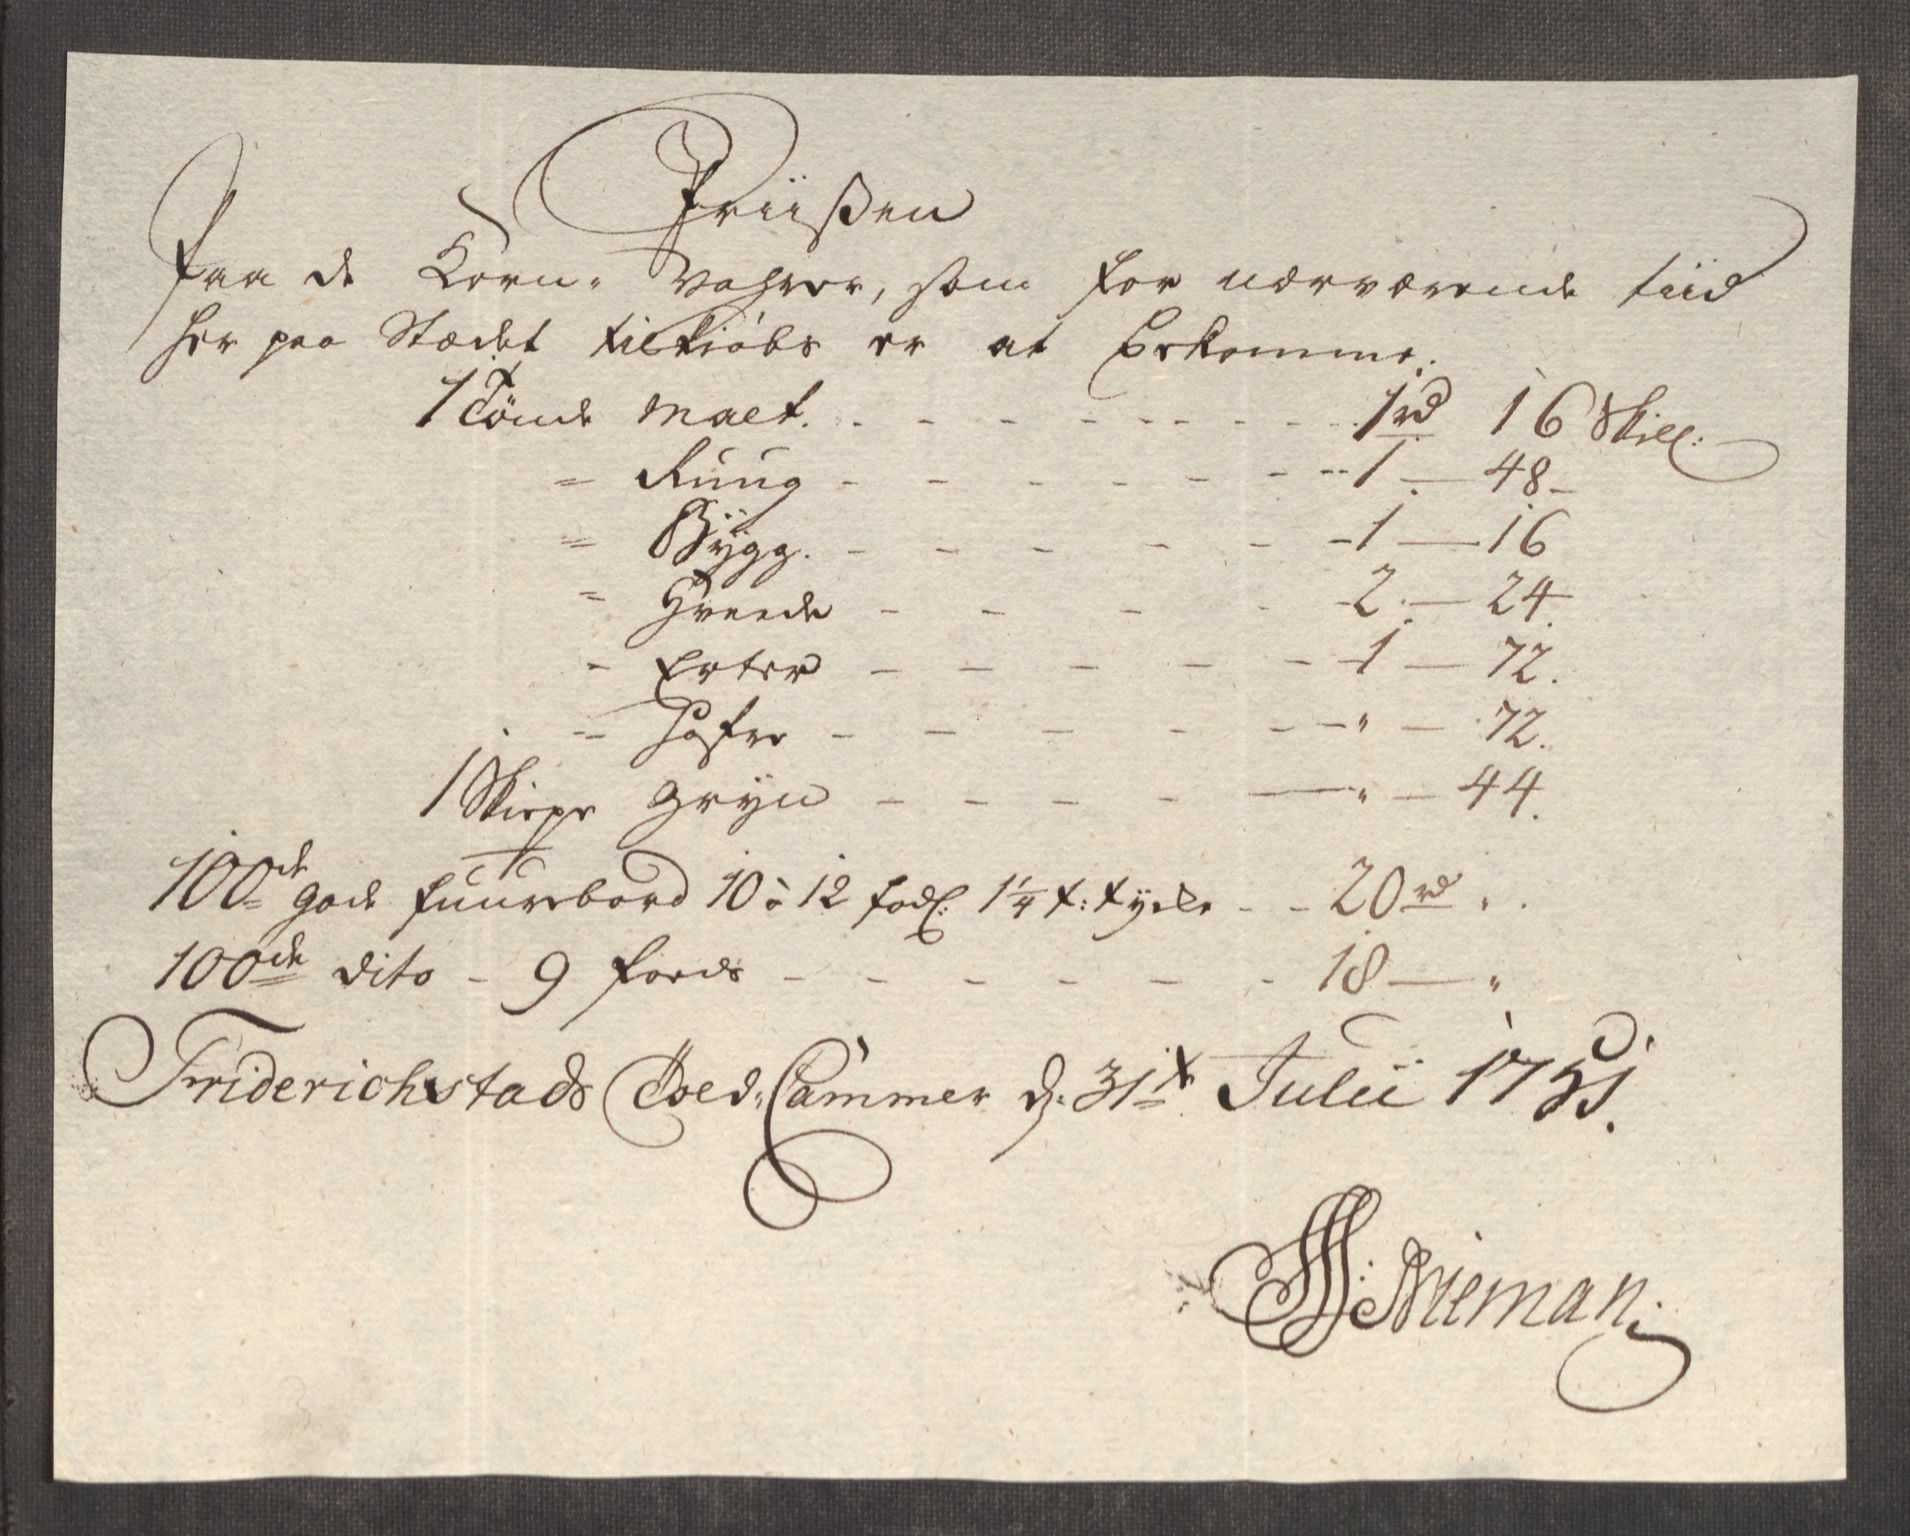 Priißen
Paa de Korn- Vahrer, som for nærværende tiid
her paa Stædet til Kiøbs er at bekomme.
1 Tönde Malt. - - - - - - - - 1 rd 16 Skill:
= Ruug - - - - - - - 1 — 48 -
= Bÿgg. - - - - - - 1 — 16
= Hveede - - - - - 2 — 24.
- Erter - - - - - - 1 — 72.
= Hafre - - - - - - " — 72.
1 Skieppe Grÿn - - - - — " — 44.
100de gode fuurebord 10 à 12 fods: 1 1/4 t: tycke - - 20 rd " .
100de dito - 9 foeds - - - - - - 18 — "
Friderichstads Toed-Cammer d: 31te Julii 1751.
Nieman.